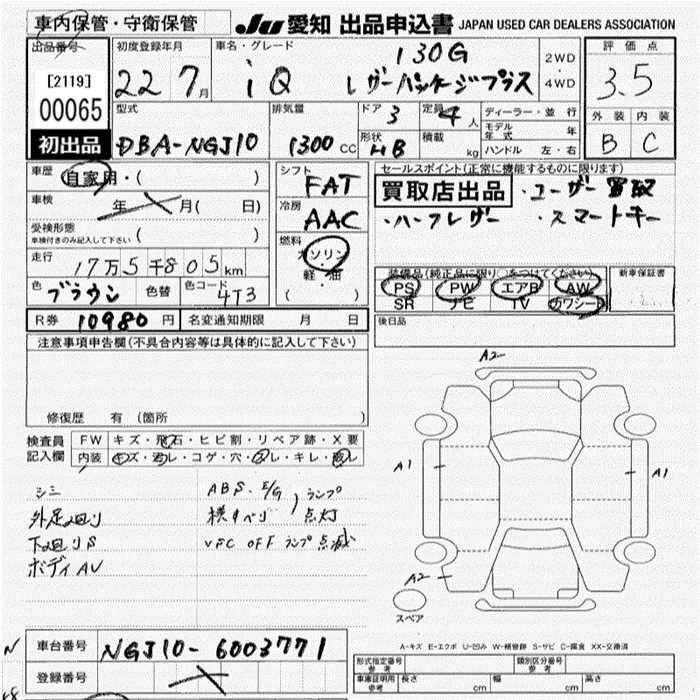 車内保管・守衛保管
JU 愛知 出品申込書 JAPAN USED CAR DEALERS ASSOCIATION
出品番号
[2119]
00065
初出品
初度登録年月
22 7月
車名・グレード
iQ
130G
レザーパッケージプラス
2WD
・
4WD
評価点
3.5
外装 内装
B C
型式
DBA-NGJ10
排気量
1300 cc
ドア 3
定員 4人
形状 HB
積載 kg
ディーラー・並行
モデル年式 年
ハンドル 左・右
車歴
自家用・( )
車検
年 月( 日)
受検形態
車検付きのみ記入して下さい ( )
走行
17万5千805km
色 ブラウン
色替
色コード 4T3
シフト
FAT
冷房
AAC
燃料
ガソリン
軽・油
( )
セールスポイント(正常に機能するものに限ります)
買取店出品 ・ユーザー買取
・ハーフレザー ・スマートキー
装備品(純正品に限り○をつけてください)
PS PW エアB AW
SR ナビ TV カワシート
新車保証書
後日品
R券 10980 円
名変通知期限 月 日
注意事項申告欄(不具合内容等は具体的に記入して下さい)
修復歴 有 (箇所 )
検査員記入欄
FW キズ・飛石・ヒビ割・リペア跡・X要
内装 キズ・汚レ・コゲ・穴・スレ・キレ・破レ
シミ
外足廻り
下廻りS
ボディAV
ABS・E/G ランプ
横すべり 点灯
VSC OFF ランプ点滅
A2
A1
A1
A2
スペア
A-キズ E-エクボ U-凹み W-補修跡 S-サビ C-腐食 XX-交換済
車台番号 NGJ10-6003771
登録番号
形式指定番号 参考
類別区分番号 参考
車庫証明用 参考
長さ cm
幅 cm
高さ cm